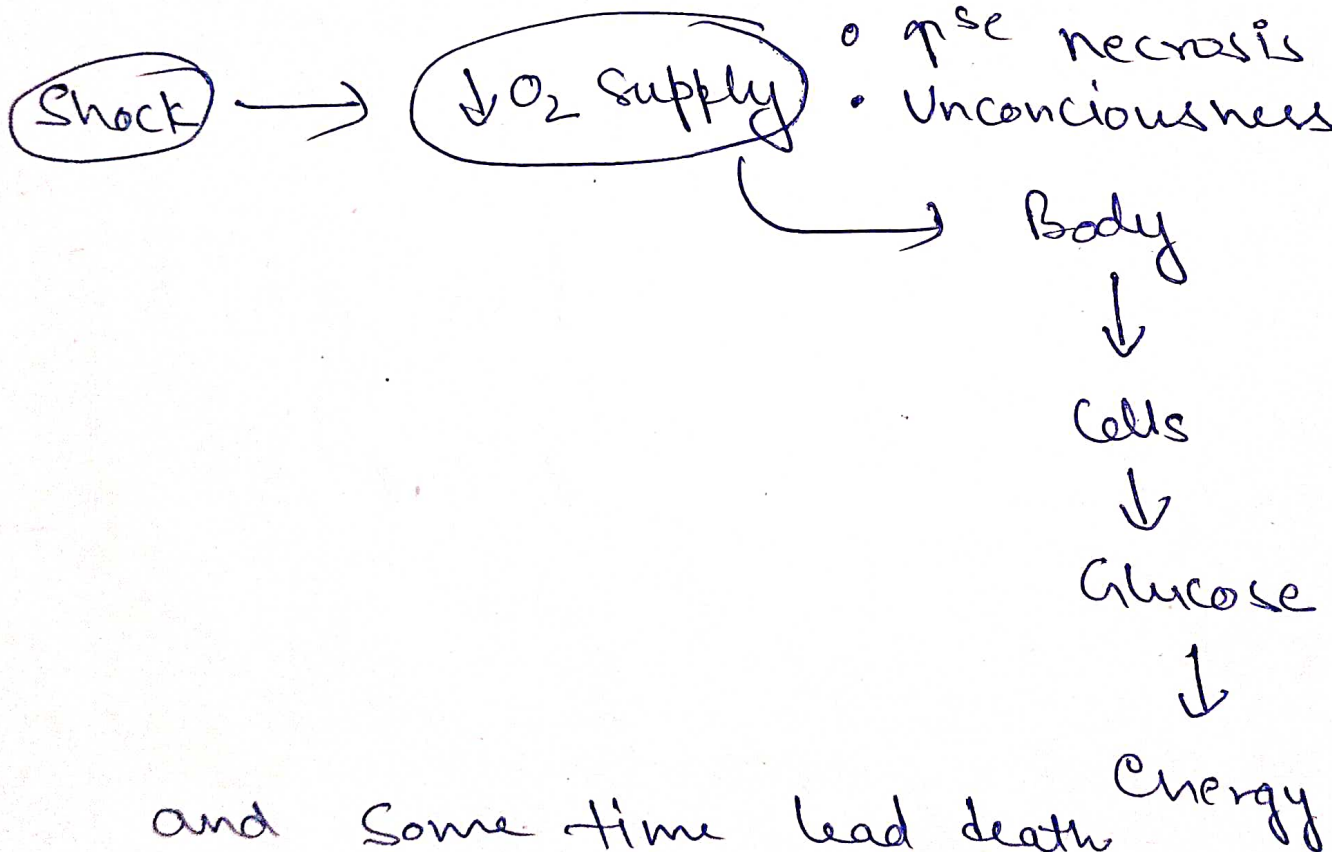 Shock → ↓O₂ Supply
necrosis
• Unconciousness
Body
↓
Cells
↓
Glucose
↓
Energy
and some time lead death